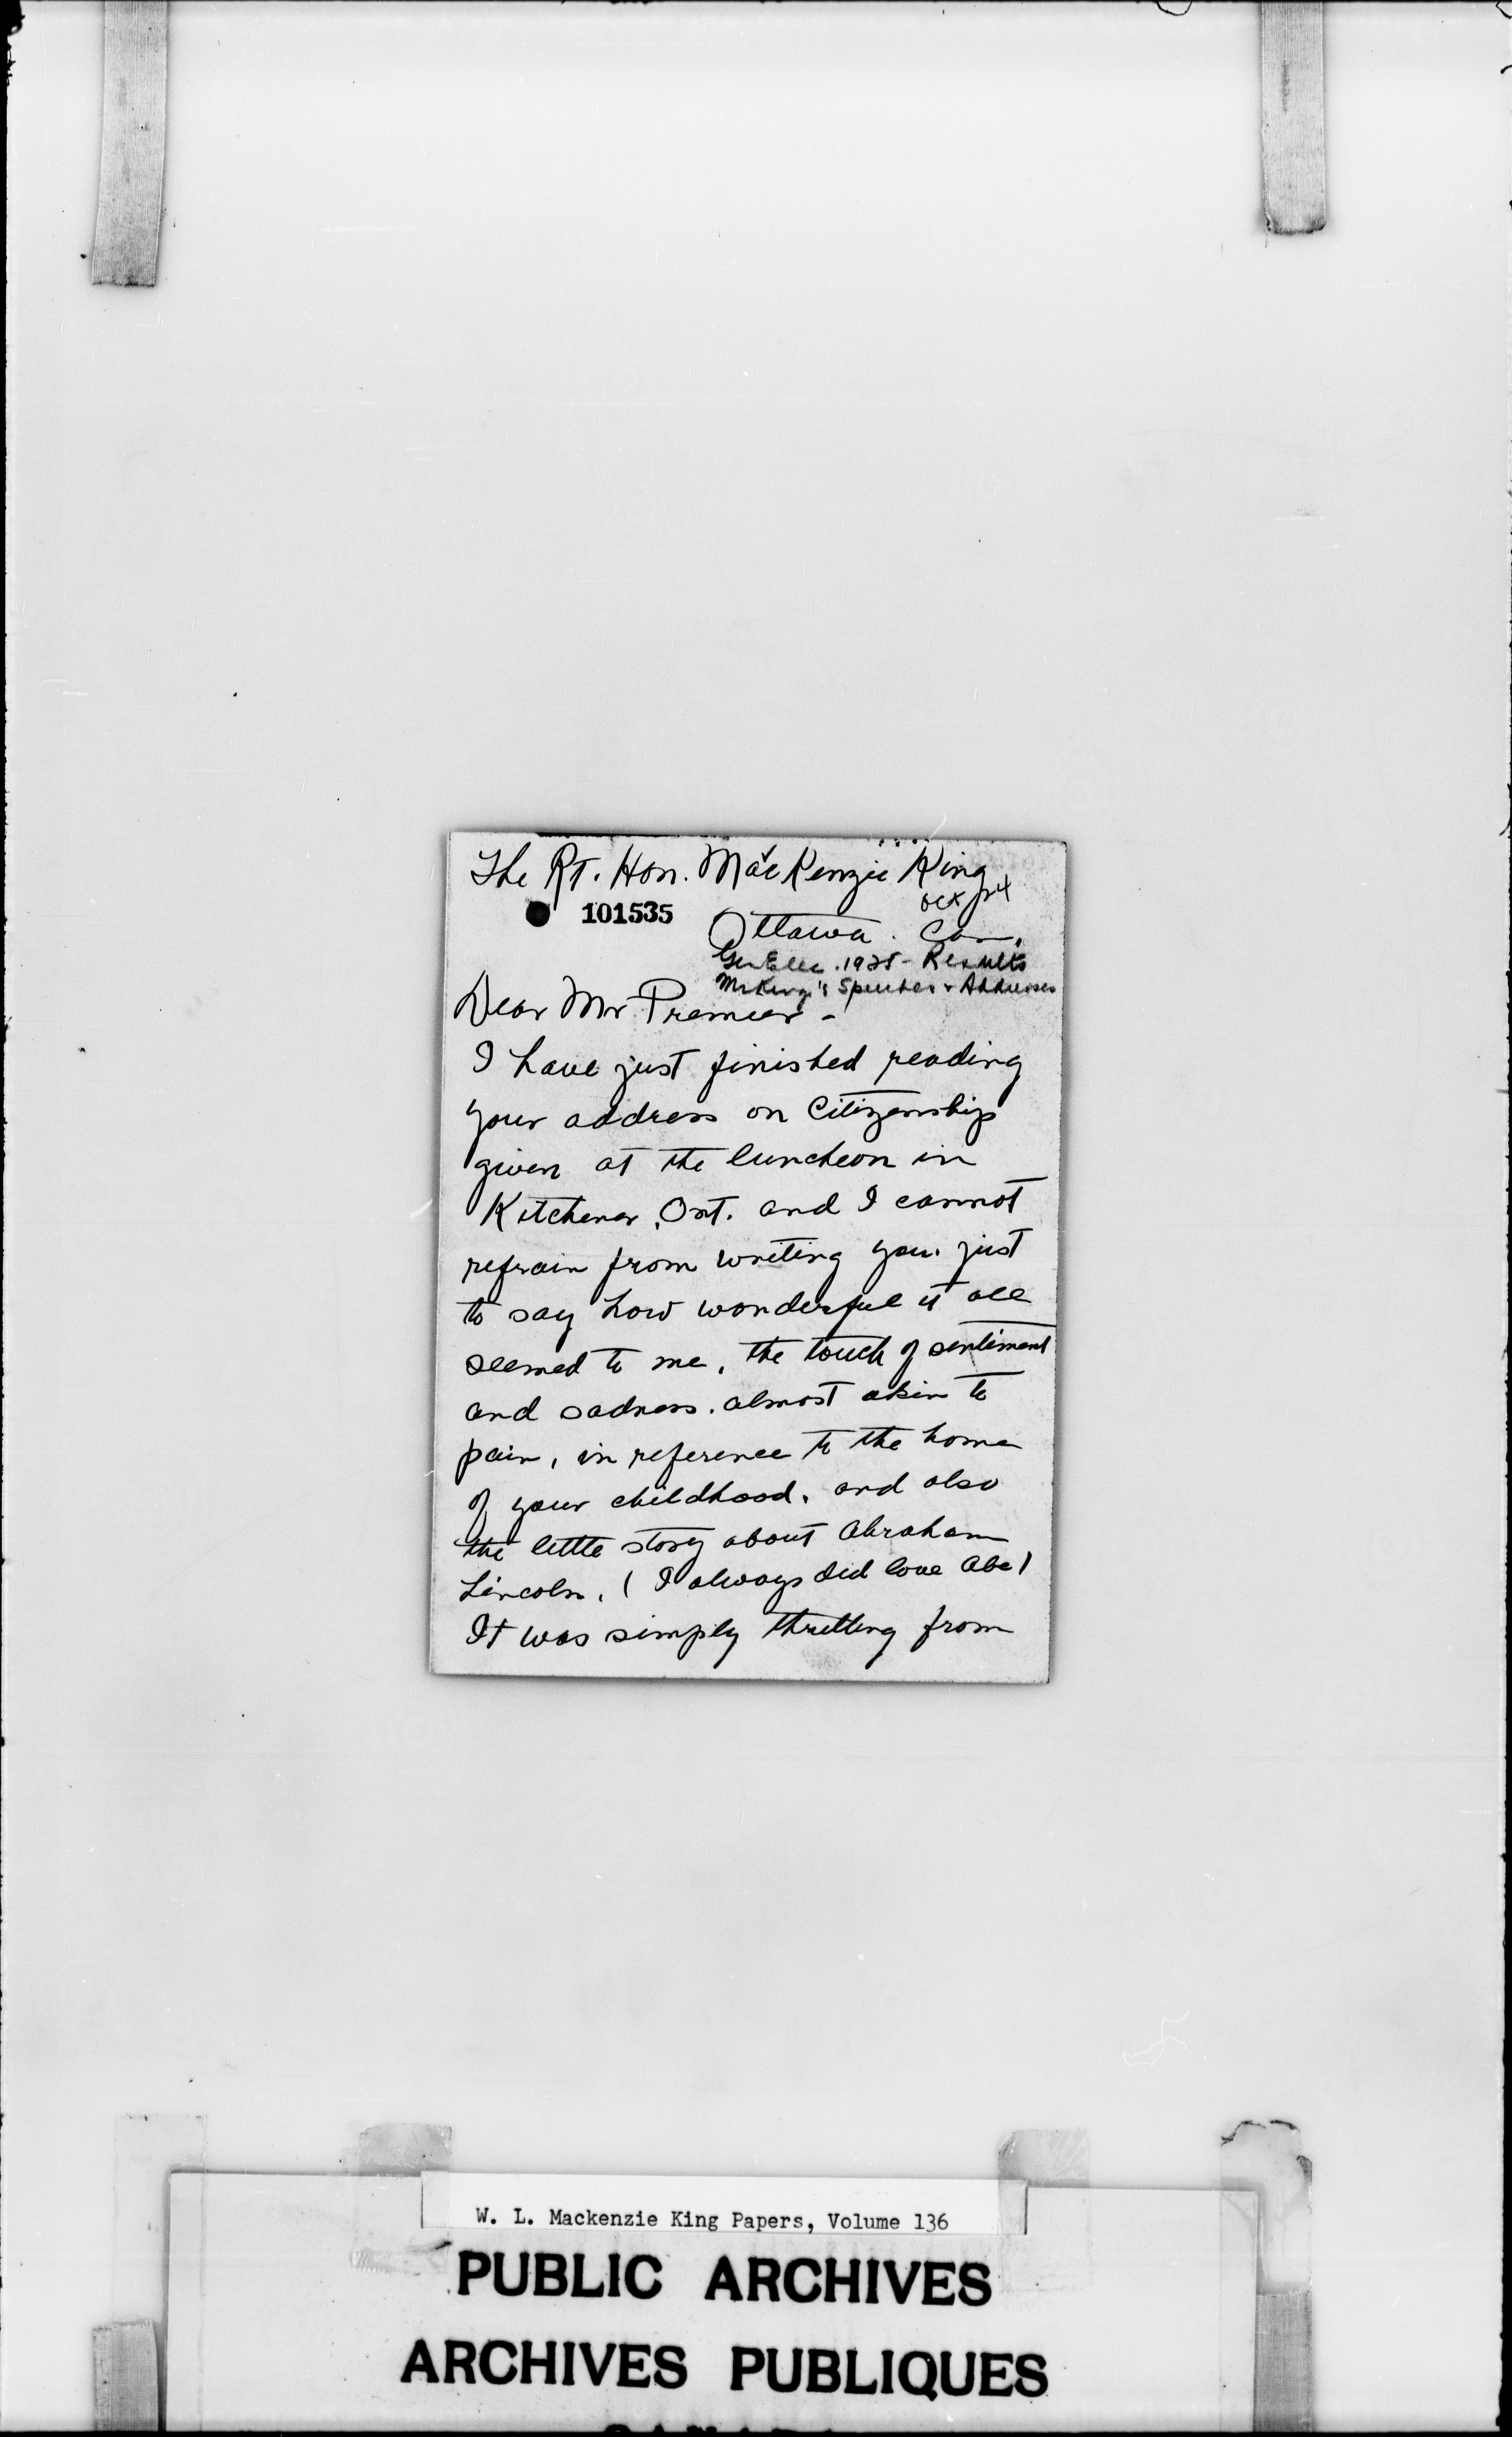 The Rt. Hon. MacKenzie King
101535
Ottawa. Can.
Gen Elec. 1925 - Results
Mr King's Speeches & Addresses
Dear Mr Premier -
I have just finished reading
your address on Citizenship
given at the luncheon in
Kitchener, Ont. and I cannot
refrain from writing you just
to say how wonderful it all
seemed to me, the touch of sentiment
and sadness. almost akin to
pain, in reference to the home
of your childhood, and also
the little story about Abraham
Lincoln. (I always did love Abe)
It was simply thrilling from
W. L. Mackenzie King Papers, Volume 136
PUBLIC ARCHIVES
ARCHIVES PUBLIQUES